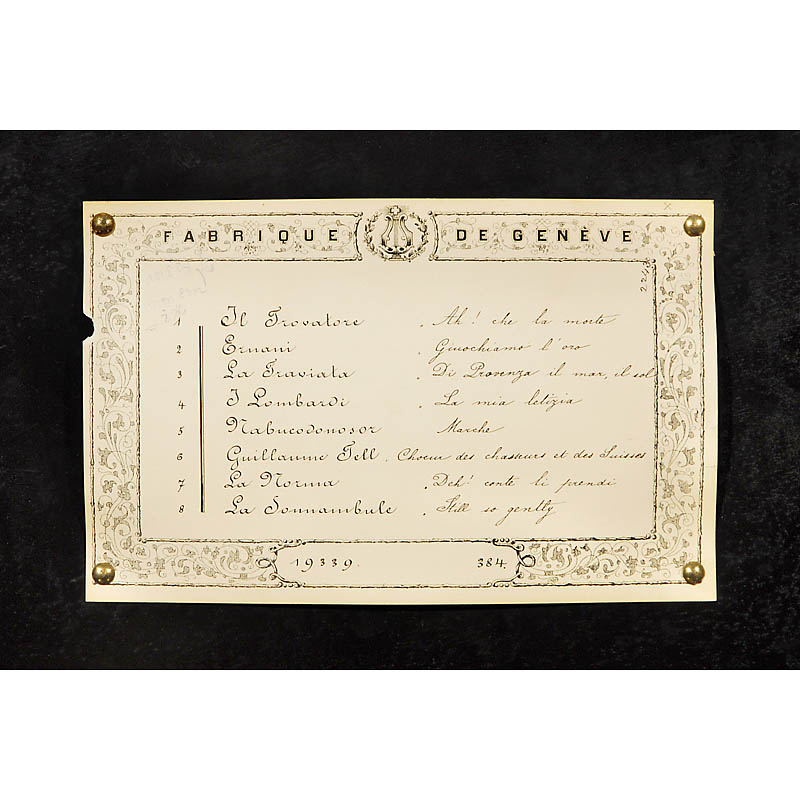 FABRIQUE DE GENÈVE
1 Il Trovatore . Ah! che la morte
2 Ernani . Giuochiamo l'oro
3 La Traviata . Di Provenza il mar, il sol
4 I Lombardi . La mia letizia
5 Nabucodonosor Marche
6 Guillaume Tell . Choeur des chasseurs et des Suisses
7 La Norma . Deh! conte li prendi
8 La Sonnambule . Still so gently
19339. 384.